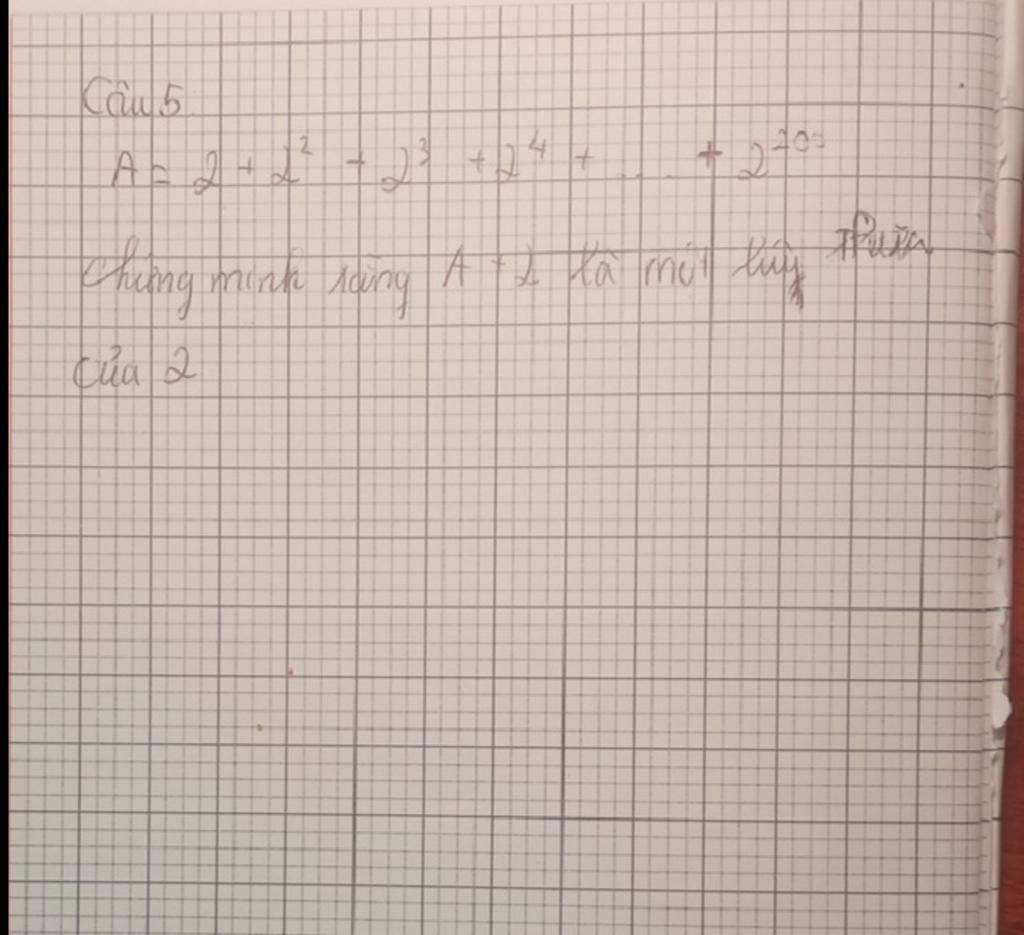 Câu 5
A = 2 + 2² + 2³ + 2⁴ + .... + 2²⁰⁰
Chứng minh rằng A + 2 là một lũy thừa
của 2